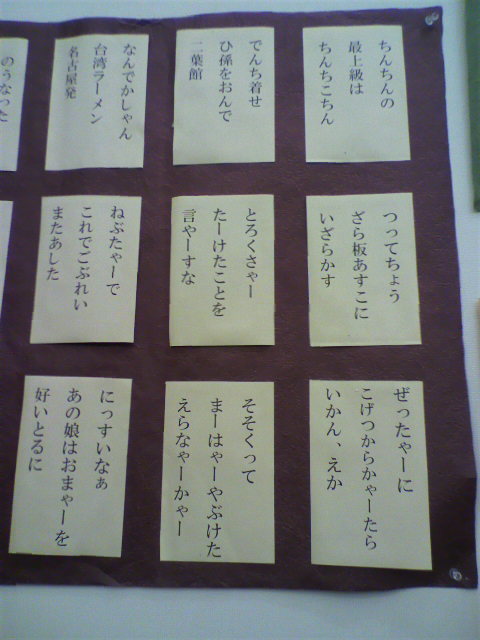 ちんちんの
最上級は
ちんちこちん
でんち着せ
ひ孫をおんで
二葉館
なんでかしゃん
台湾ラーメン
名古屋発
のうなった
つってちょう
ざら板あすこに
いざらかす
とろくさゃー
たーけたことを
言やーすな
ねぶたゃーで
これでごぶれい
またあした
ぜったゃーに
こげつからかゃーたら
いかん、えか
そそくって
まーはゃーやぶけた
えらなゃーかゃー
にっすいなぁ
あの娘はおまゃーを
好いとるに